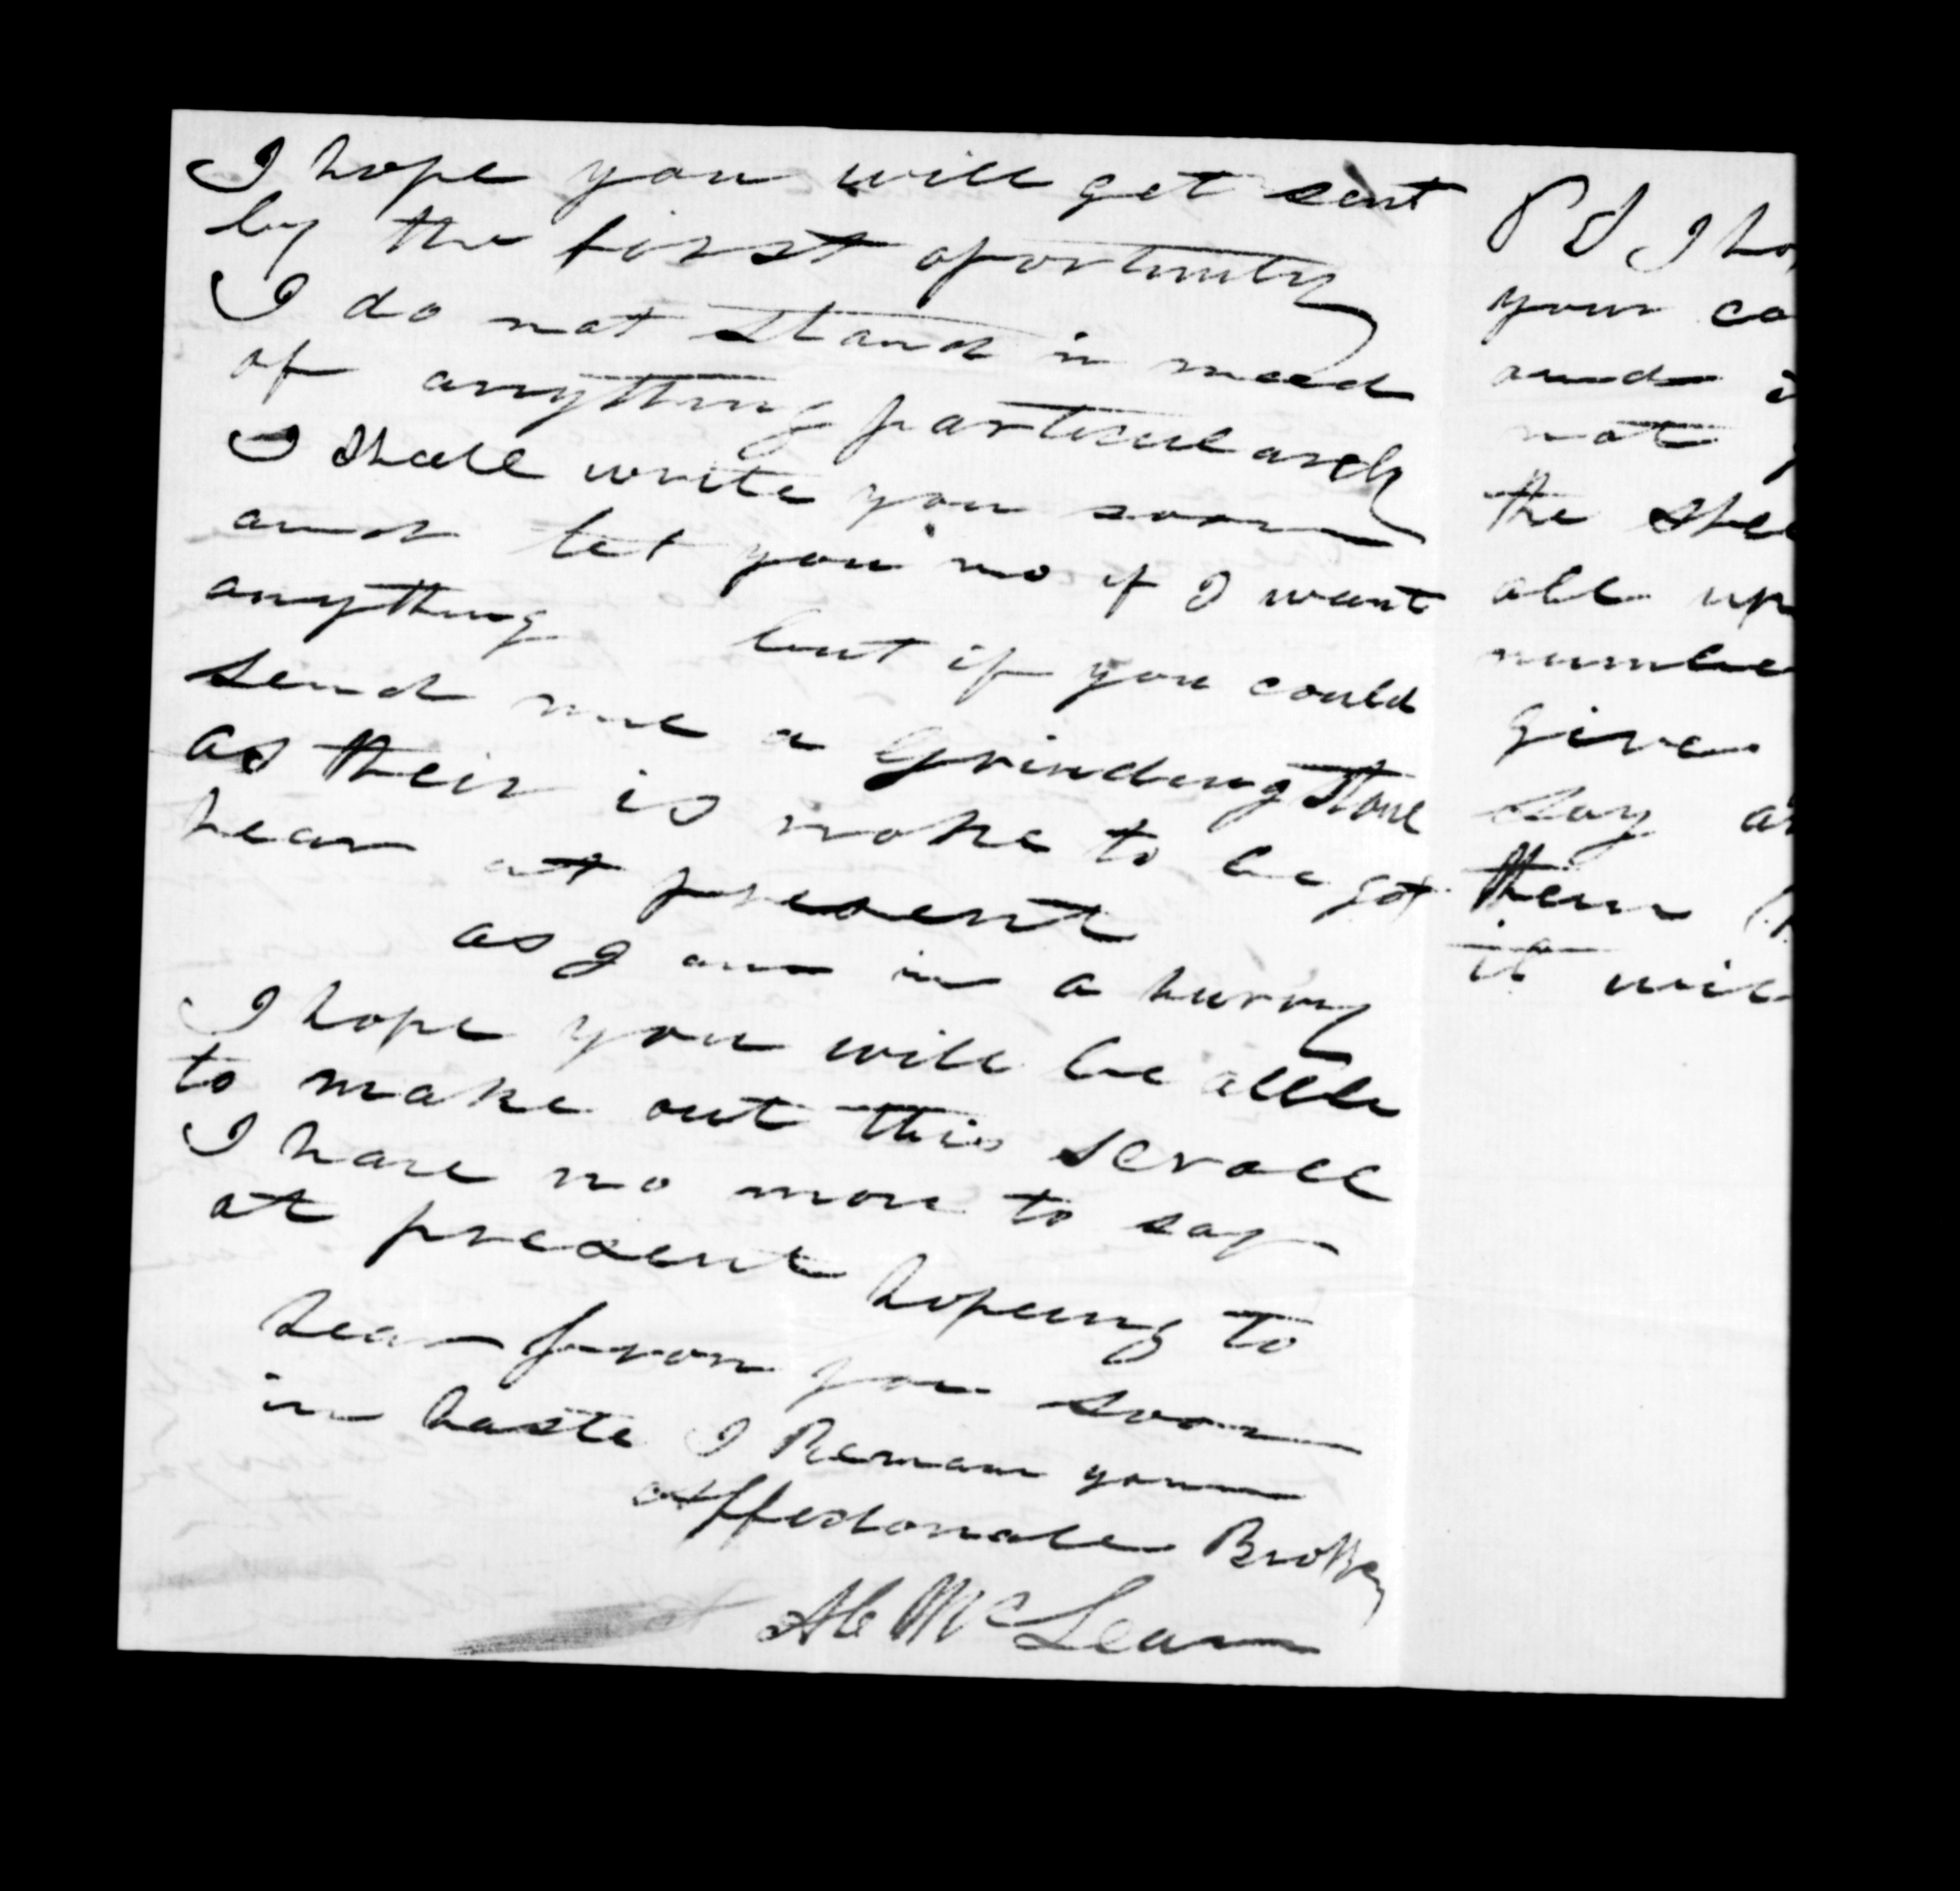 I hope you will get sent
by the first oportunity
I do not stand in need
of anything particularly
I shall write you soon
and let you no if I want
anything but if you could
send me a Grinding stone
as their is noke to be got
hear at present
as I am in a hurry
I hope you will be able
to make out this scroll
I have no more to say
at present hopeing to
hear from you soon
in haste I Remain your
affectionate Brother
Al McLean
PS I ho
your co
and
not
the shee
all up
numbe
give
day a
them
it wil